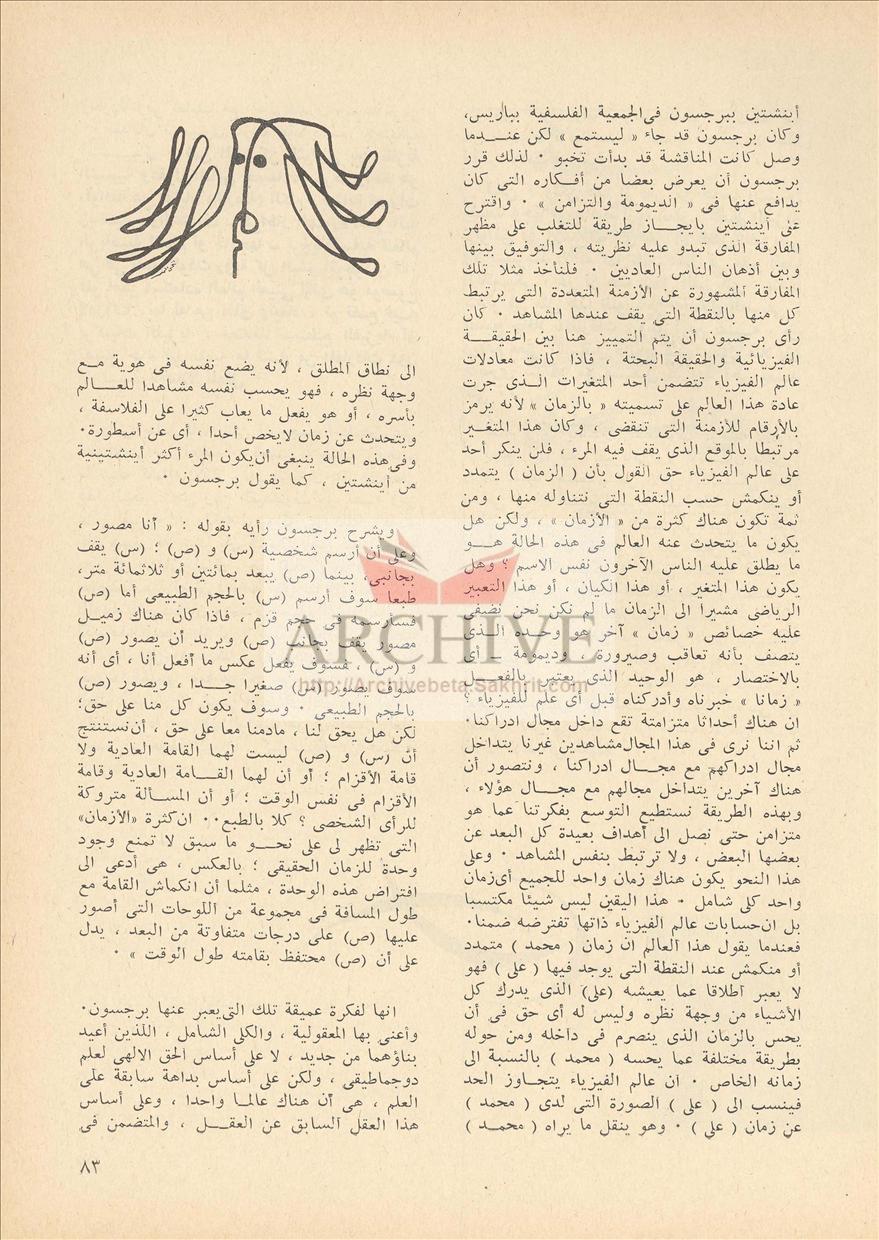 أينشتين ببرجسون فى الجمعية الفلسفية بباريس،
وكان برجسون قد جاء « ليستمع » لكن عنـــدما
وصل كانت المناقشة قد بدأت تخبو ٠ لذلك قرر
برجسون أن يعرض بعضا من أفــكاره التى كان
يدافع عنها فى « الديمومة والتزامن » ٠ واقترح
على أينشتين بايجـــاز طريقة للتغلب على مظهر
المفارقة الذى تبدو عليه نظريته ، والتوفيق بينها
وبين أذهان الناس العاديين ٠ فلنأخذ مثلا تلك
المفارقة المشهورة عن الأزمنة المتعددة التى يرتبط
كل منها بالنقطة التى يقف عندها المشاهد ٠ كان
رأى برجسون أن يتم التمييز هنا بين الحقيقــة
الفيزيائية والحقيقة البحتة ، فاذا كانت معادلات
عالم الفيزياء تتضمن أحد المتغيرات الــذى جرت
عادة هذا العالم على تسميته « بالزمان » لأنه يرمز
بالأرقام للأزمنة التى تنقضى ، وكان هذا المتغــير
مرتبطا بالموقع الذى يقف فيه المرء ، فلن ينكر أحد
على عالم الفيزياء حق القول بأن ( الزمان ) يتمدد
أو ينكمش حسب النقطة التى نتناوله منها ، ومن
ثمة تكون هناك كثرة من « الأزمان » ، ولكن هل
يكون ما يتحدث عنه العالم فى هذه الحالة هـــو
ما يطلق عليه الناس الآخرون نفس الاسم ؟ وهل
يكون هذا المتغير ، أو هذا الكيان ، أو هذا التعبير
الرياضى مشيرا الى الزمان ما لم نكن نحن نضفى
عليه خصائص « زمان » آخر هو وحــده الــذى
يتصف بأنه تعاقب وصيرورة ، وديمومة ، أى
بالاختصار ، هو الوحيد الذى يعتبر بالفعـــل
« زمانا » خبرناه وأدركناه قبل أى علم للفيزياء ؟
ان هناك أحداثا متزامنة تقع داخل مجال ادراكنا٠
ثم اننا نرى فى هذا المجال مشاهدين غيرنا يتداخل
مجال ادراكهم مع مجـــال ادراكنا ، ونتصور أن
هناك آخرين يتداخل مجالهم مع مجـــال هؤلاء ،
وبهذه الطريقة نستطيع التوسع بفكرتنا عما هو
متزامن حتى نصل الى أهداف بعيدة كل البعد عن
بعضها البعض ، ولا ترتبط بنفس المشاهد ٠ وعلى
هذا النحو يكون هناك زمان واحد للجميع أى زمان
واحد كلى شامل ٠ هذا اليقين ليس شيئا مكتسبا
بل ان حسابات عالم الفيزياء ذاتها تفترضه ضمنا٠
فعندما يقول هذا العالم ان زمان ( محمد ) متمدد
أو منكمش عند النقطة التى يوجد فيها ( على ) فهو
لا يعبر اطلاقا عما يعيشه (على) الذى يدرك كل
الأشياء من وجهة نظره وليس له أى حق فى أن
يحس بالزمان الذى ينصرم فى داخله ومن حوله
بطريقة مختلفة عما يحسه ( محمد ) بالنسبة الى
زمانه الخاص ٠ ان عالم الفيزياء يتجــاوز الحد
فينسب الى ( على ) الصورة التى لدى ( محمد )
عن زمان ( على ) ٠ وهو ينقل ما يراه ( محمــد )
الى نطاق المطلق ، لأنه يضع نفسه فى هوية مــع
وجهة نظره ، فهو يحسب نفسه مشاهدا للعـــالم
بأسره ، أو هو يفعل ما يعاب كثيرا على الفلاسفة ،
ويتحدث عن زمان لايخص أحدا ، أى عن أسطورة٠
وفى هذه الحالة ينبغى أن يكون المرء أكثر أينشتينية
من أينشتين ، كما يقول برجسون ٠
ويشرح برجسون رأيه بقوله : « أنا مصور ،
وعلى أن أرسم شخصية (س) و (ص) ؛ (س) يقف
بجانبى، بينما (ص) يبعد بمائتين أو ثلاثمائة متر،
طبعا سوف أرسم (س) بالحجم الطبيعى أما (ص)
فسأرسمه فى حجم قزم ، فاذا كان هناك زميــل
مصور يقف بجانب (ص) ويريد أن يصور (ص)
و (س) ، فسوف يفعل عكس ما أفعل أنا ، أى أنه
سوف يصور (س) صغيرا جـــدا ، ويصور (ص)
بالحجم الطبيعى ٠ وسوف يكون كل منا على حق؛
لكن هل يحق لنا ، مادمنا معا على حق ، أن نستنتج
أن (س) و (ص) ليست لهما القامة العادية ولا
قامة الأقزام ؛ أو أن لهما القـــامة العادية وقامة
الأقزام فى نفس الوقت ؛ أو أن المســألة متروكة
للرأى الشخصى ؟ كلا بالطبع٠٠ ان كثرة «الأزمان»
التى تظهر لى على نحـــو ما سبق لا تمنع وجود
وحدة للزمان الحقيقى ؛ بالعكس ، هى أدعى الى
افتراض هذه الوحدة ، مثلما أن انكماش القامة مع
طول المسافة فى مجموعة من اللوحات التى أصور
عليها (ص) على درجات متفاوتة من البعد ، يدل
على أن (ص) محتفظ بقامته طول الوقت » ٠
انها لفكرة عميقة تلك التى يعبر عنها برجسون٠
وأعنى بها المعقولية ، والكلى الشامل ، اللذين أعيد
بناؤهما من جديد ، لا على أساس الحق الالهى لعلم
دوجماطيقى ، ولكن على أساس بداهة سابقة على
العلم ، هى أن هناك عالمــا واحدا ، وعلى أساس
هذا العقل السابق عن العقــل ، والمتضمن فى
٨٣
ARCHIVE
http://Archivebeta.Sakhrit.com